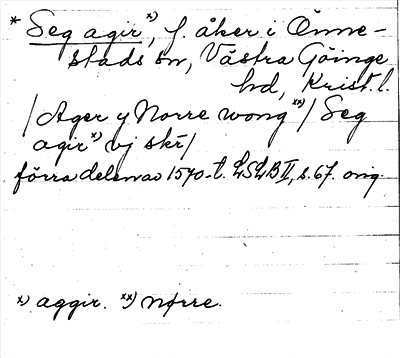 * Seg agir x), f. åker i Önne-
stads sn, Västra Göinge
hd, Krist. l.
/Ager y Norre wong xx)/ Seg
agir x) vj skr/
förra delen av 1570-t. LSLB II, s. 67. orig.
x) aggir. xx) Nørre.